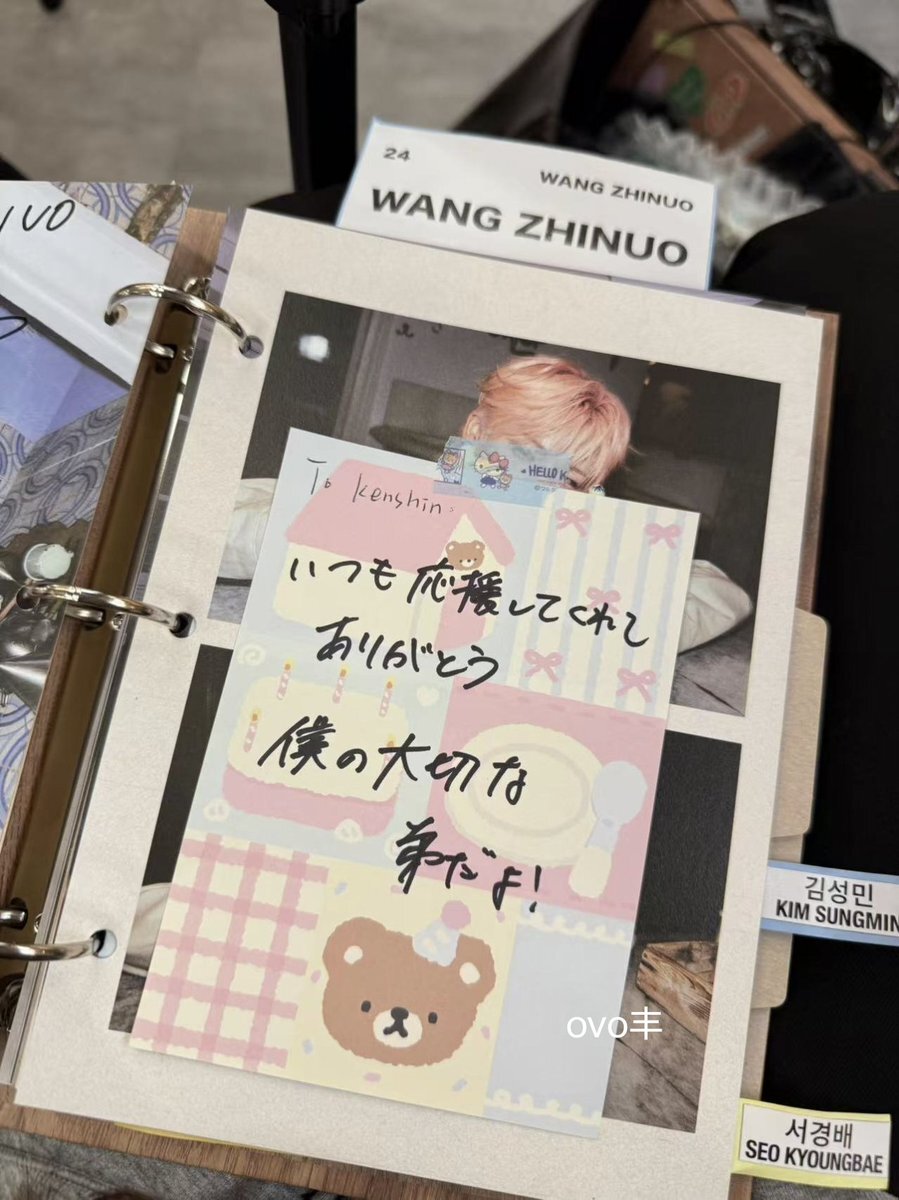 24
WANG ZHINUO
WANG ZHINUO
To Kenshin.
HELLO K
いつも応援してくれて
ありがとう
僕の大切な
弟だよ!
김성민
KIM SUNGMIN
서경배
SEO KYOUNGBAE
ovo丰